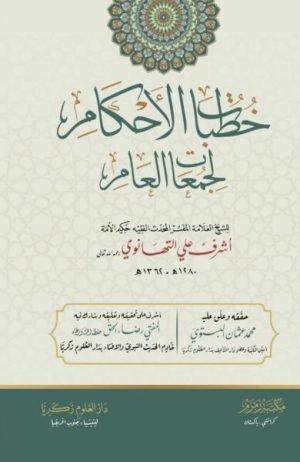 خُطُبَاتُ الأَحْكَام
لجُمُعَاتِ العَام
للشيخ العلامة المفسر المحدث الفقيه حكيم الأمة
أشرف علي التهانوي رحمه الله تعالى
١٢٨٠هـ - ١٣٦٢هـ
حققه وعلق عليه
محمد عثمان البستوي
أشرف على تحقيقه وتعليقه وشارك فيه
المفتي رضاء الحق
خادم الحديث النبوي والإفتاء بدار العلوم زكريا
مكتبة زمزم
كراتشي، باكستان
دار العلوم زكريا
لينيشيا، جنوب افريقيا